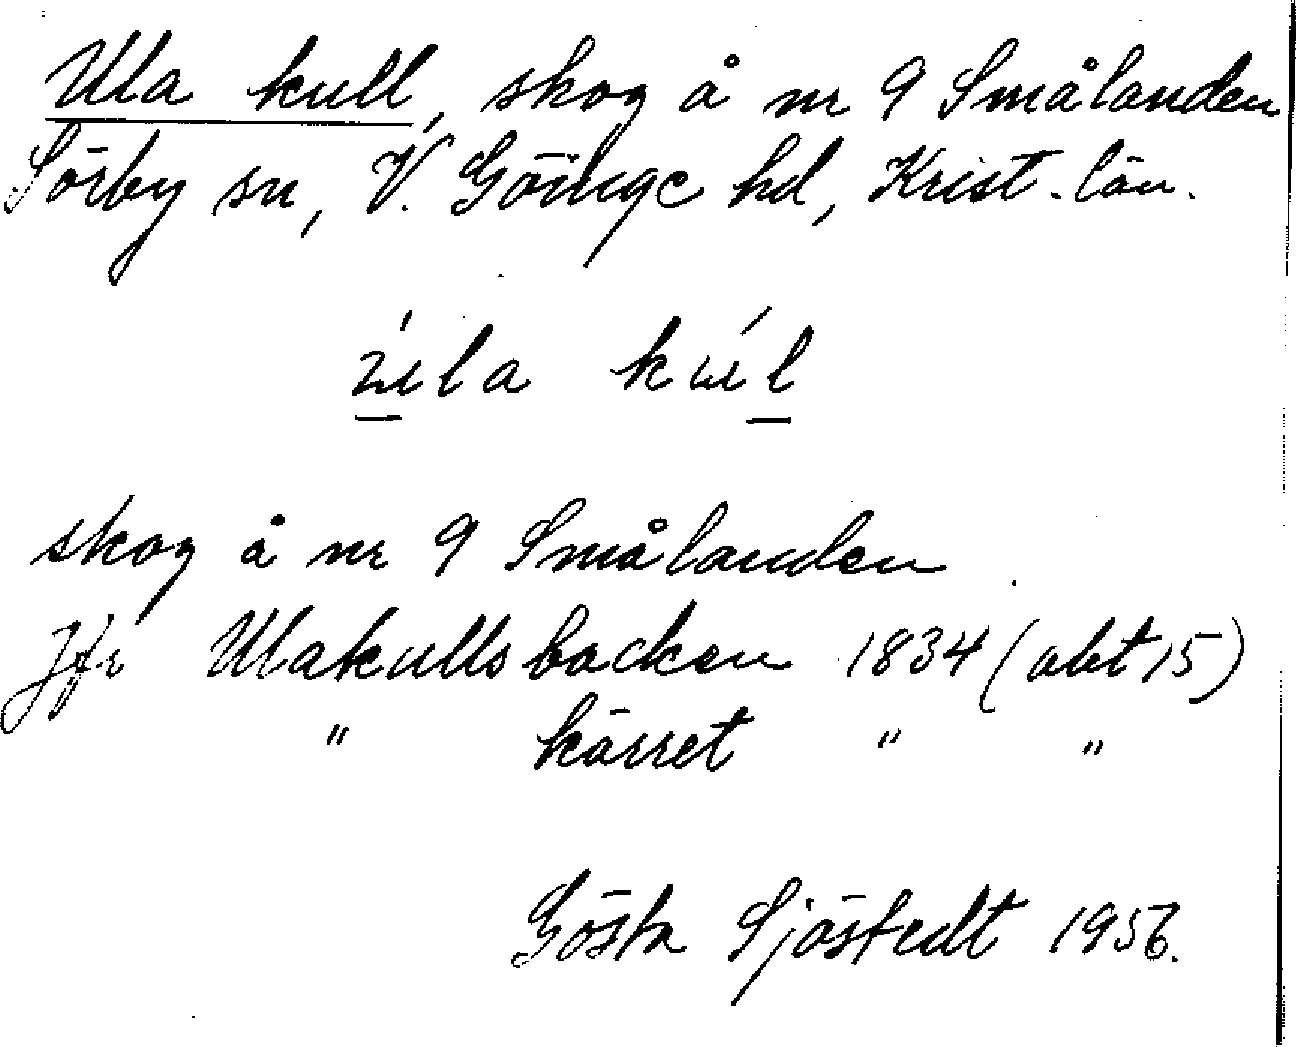 Ula kull, skog å nr 9 Smålanden
Sörby sn, V. Göinge hd, Krist. län.
úla kúl
skog å nr 9 Smålanden
Jfr Ulakullsbacken 1834 (akt 15)
" kärret " "
Gösta Sjöstedt 1956.